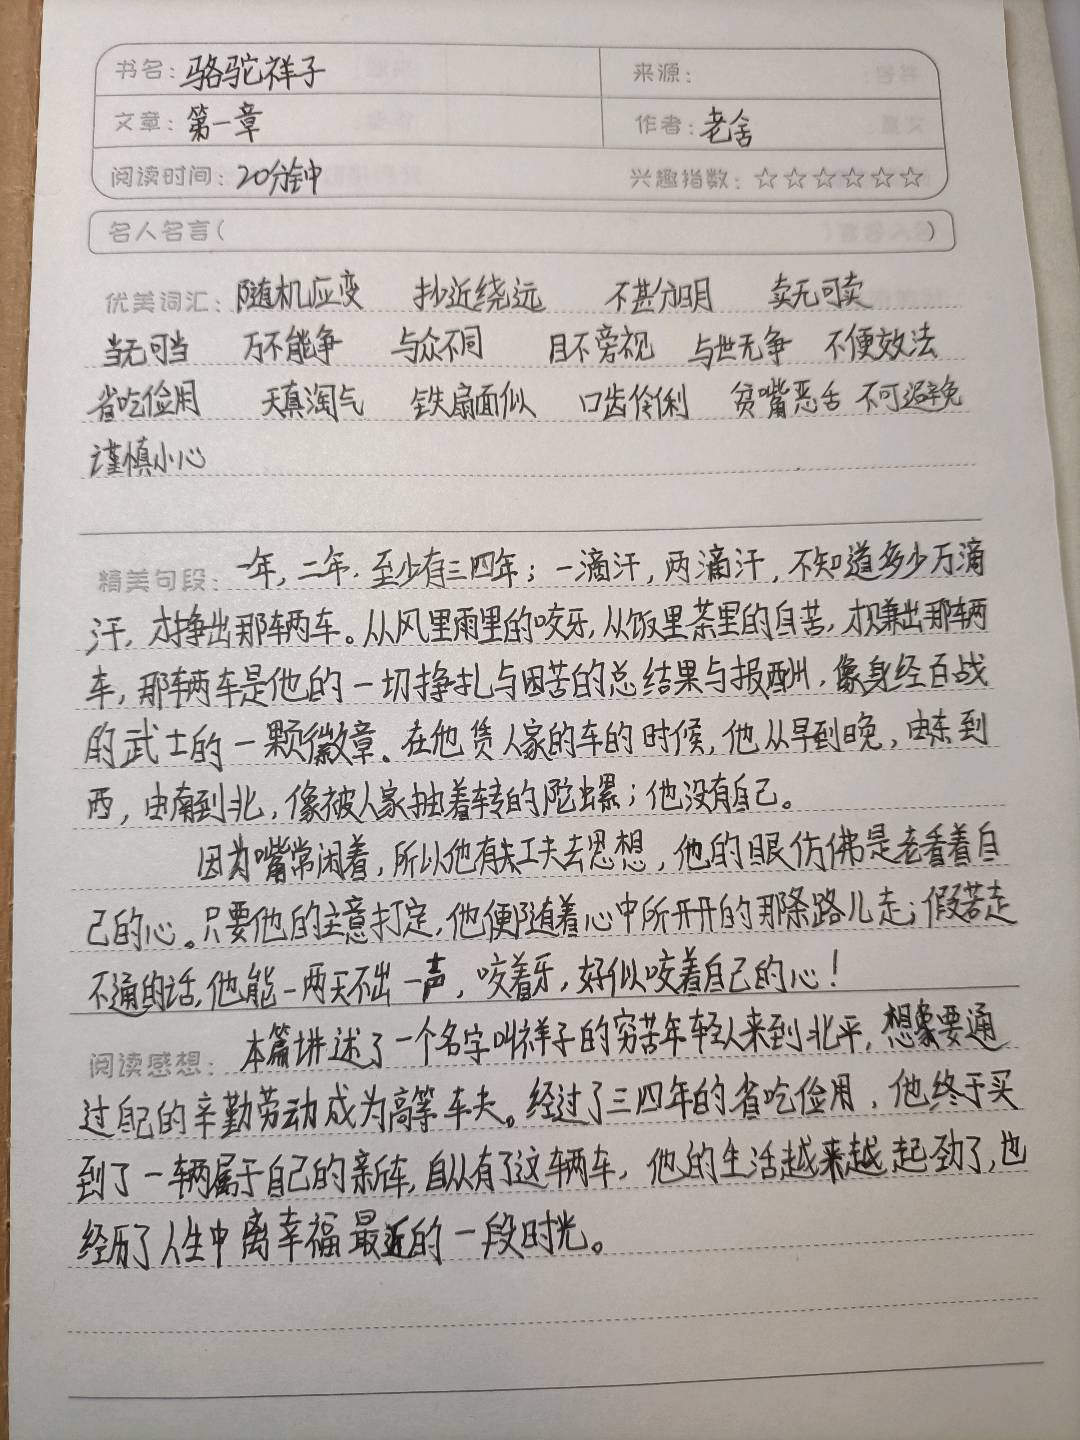 书名：骆驼祥子 来源：
文章：第一章 作者：老舍
阅读时间：20分钟 兴趣指数：☆☆☆☆☆☆
名人名言（ ）
优美词汇：随机应变 抄近绕远 不甚分明 卖无可卖
当无可当 万不能争 与众不同 目不旁视 与世无争 不便效法
省吃俭用 天真淘气 铁扇面似 口齿伶俐 贫嘴恶舌 不可避免
谨慎小心
精美句段：一年，二年，至少有三四年；一滴汗，两滴汗，不知道多少万滴
汗，才挣出那辆车。从风里雨里的咬牙，从饭里茶里的自苦，才赚出那辆
车，那辆车是他的一切挣扎与困苦的总结果与报酬，像身经百战
的武士的一颗徽章。在他赁人家的车的时候，他从早到晚，由东到
西，由南到北，像被人家抽着转的陀螺；他没有自己。
因为嘴常闲着，所以他有夫工夫去思想，他的眼仿佛是老看着自
己的心。只要他的主意打定，他便随着心中所开开的那条路儿走；假若走
不通的话，他能一两天不出一声，咬着牙，好似咬着自己的心！
阅读感想：本篇讲述了一个名字叫祥子的穷苦年轻人来到北平，想象要通
过自己的辛勤劳动成为高等车夫。经过了三四年的省吃俭用，他终于买
到了一辆属于自己的新车，自从有了这辆车，他的生活越来越起劲了，也
经历了人生中离幸福最近的一段时光。